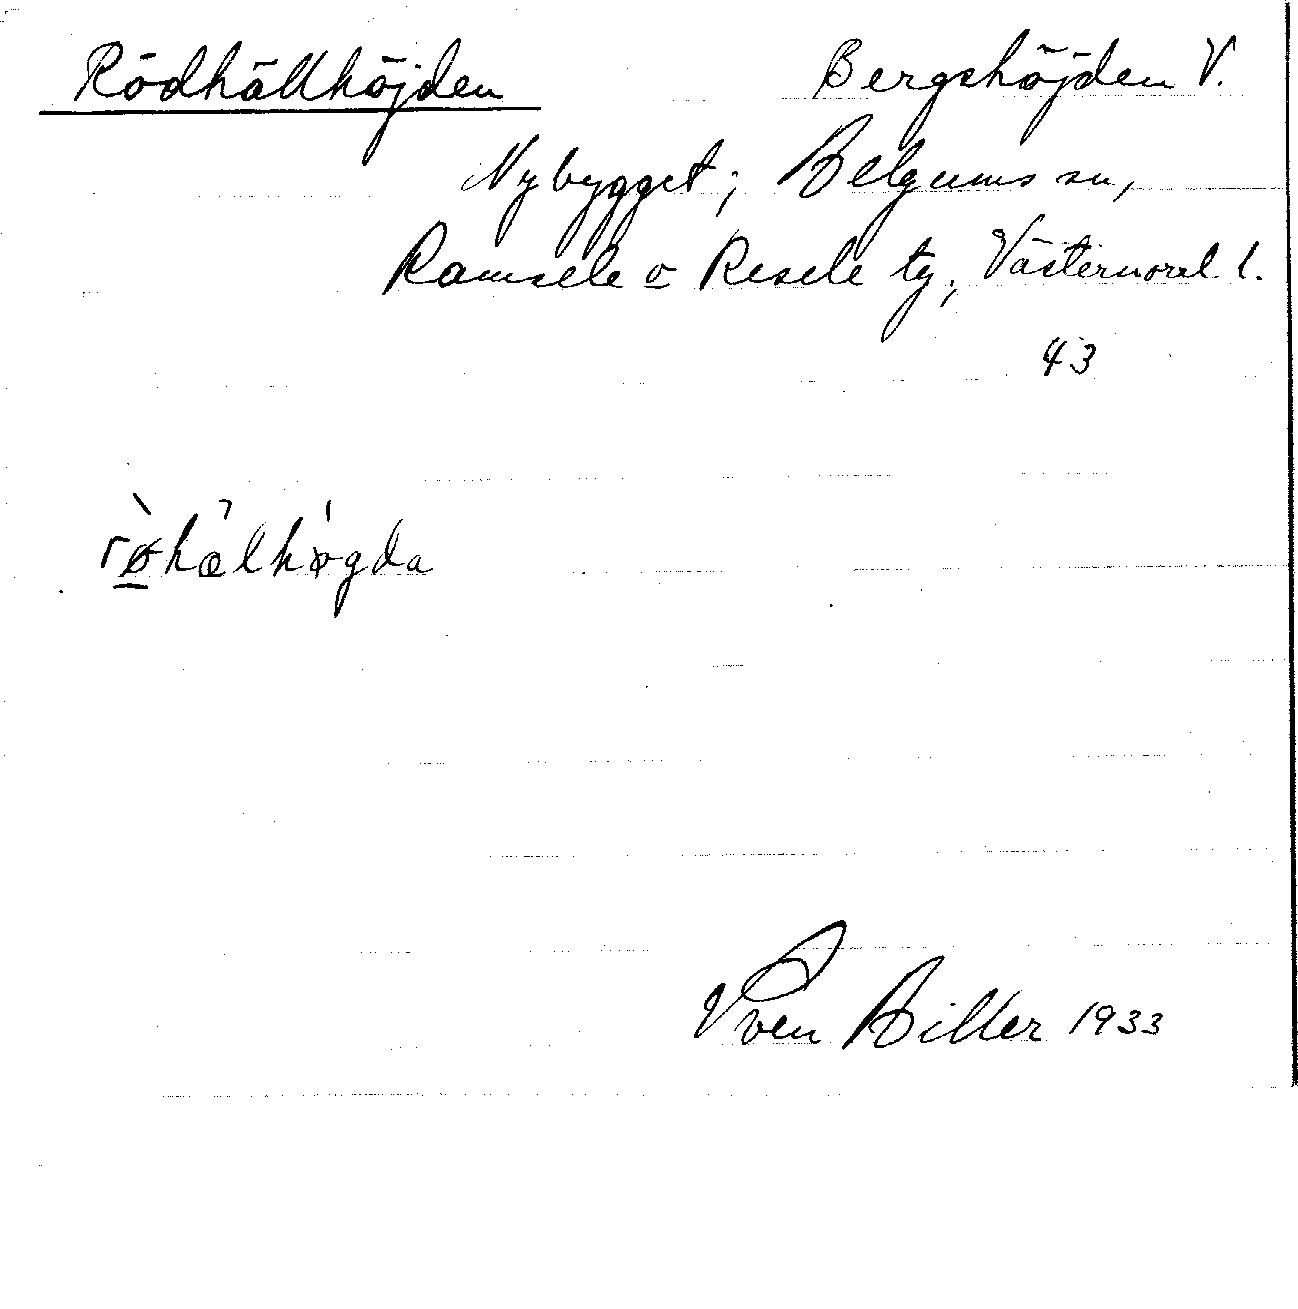 Rödhällhöjden Bergshöjden V.
Nybygget; Helgums sn,
Ramsele o Resele tg; Västernorrl. l.
43
rø̀hælhøgda
Sven Hiller 1933